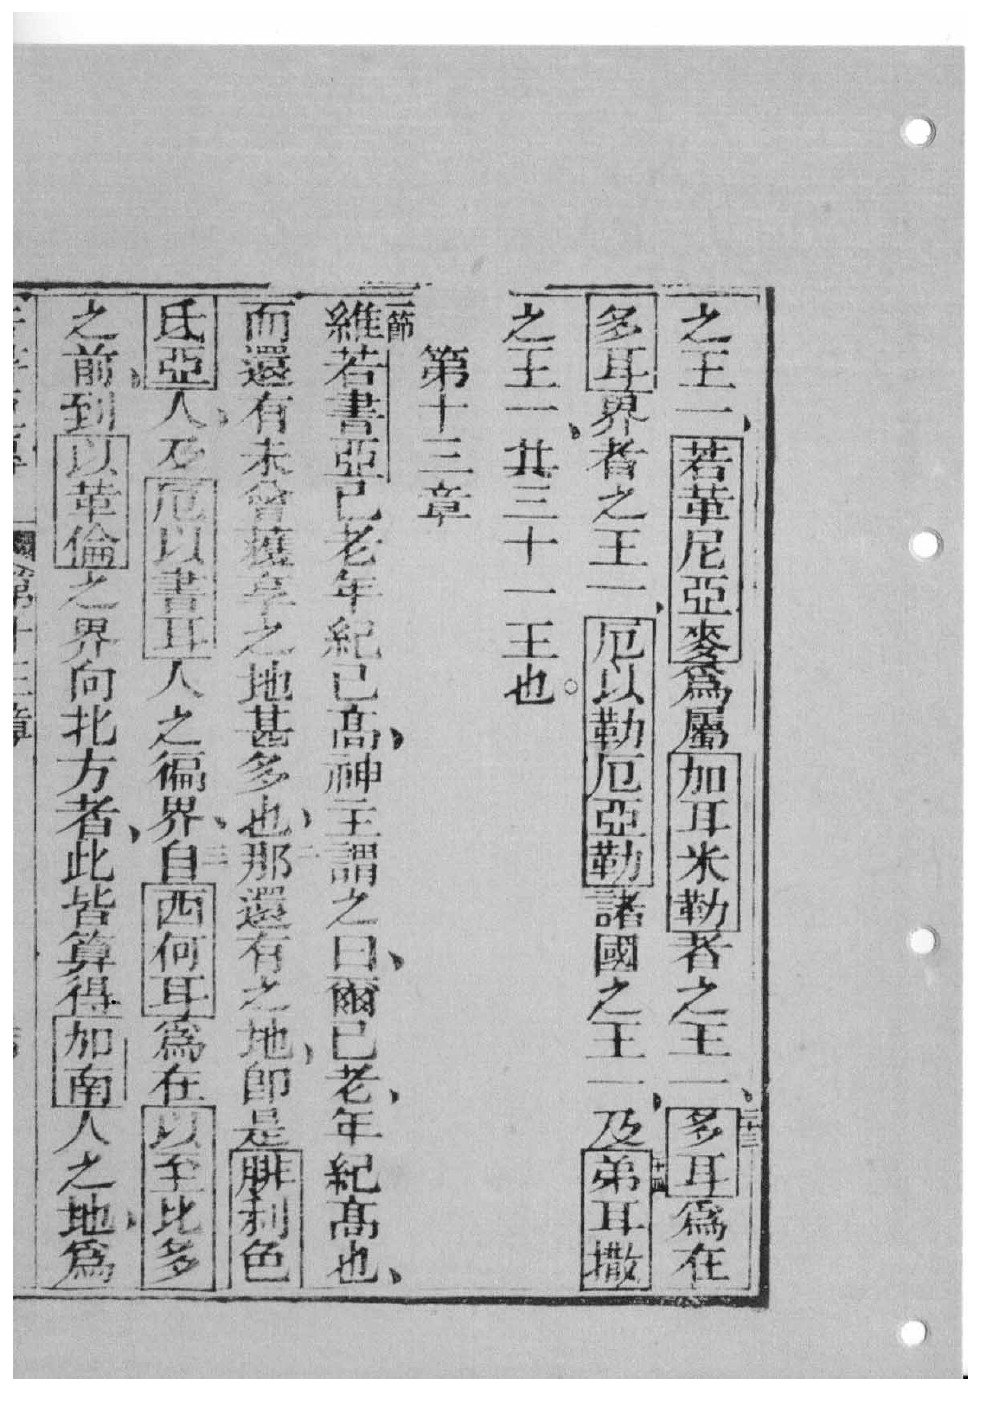 之王一、若革尼亞麥爲屬加耳米勒者之王一、二十三多耳爲在
多耳界者之王一、厄以勒厄亞勒諸國之王一、及二十四弟耳撒
之王一、共三十一王也。
第十三章
一節維若書亞已老年紀已高、神主謂之曰、爾已老、年紀高也、
而還有未曾穫享之地甚多也、二那還有之地、卽是腓利色
氐亞人、及厄以書耳人之徧界、三自西何耳爲在以至比多
之前、到以革倫之界向北方者、此皆算得加南人之地、爲
第十三章